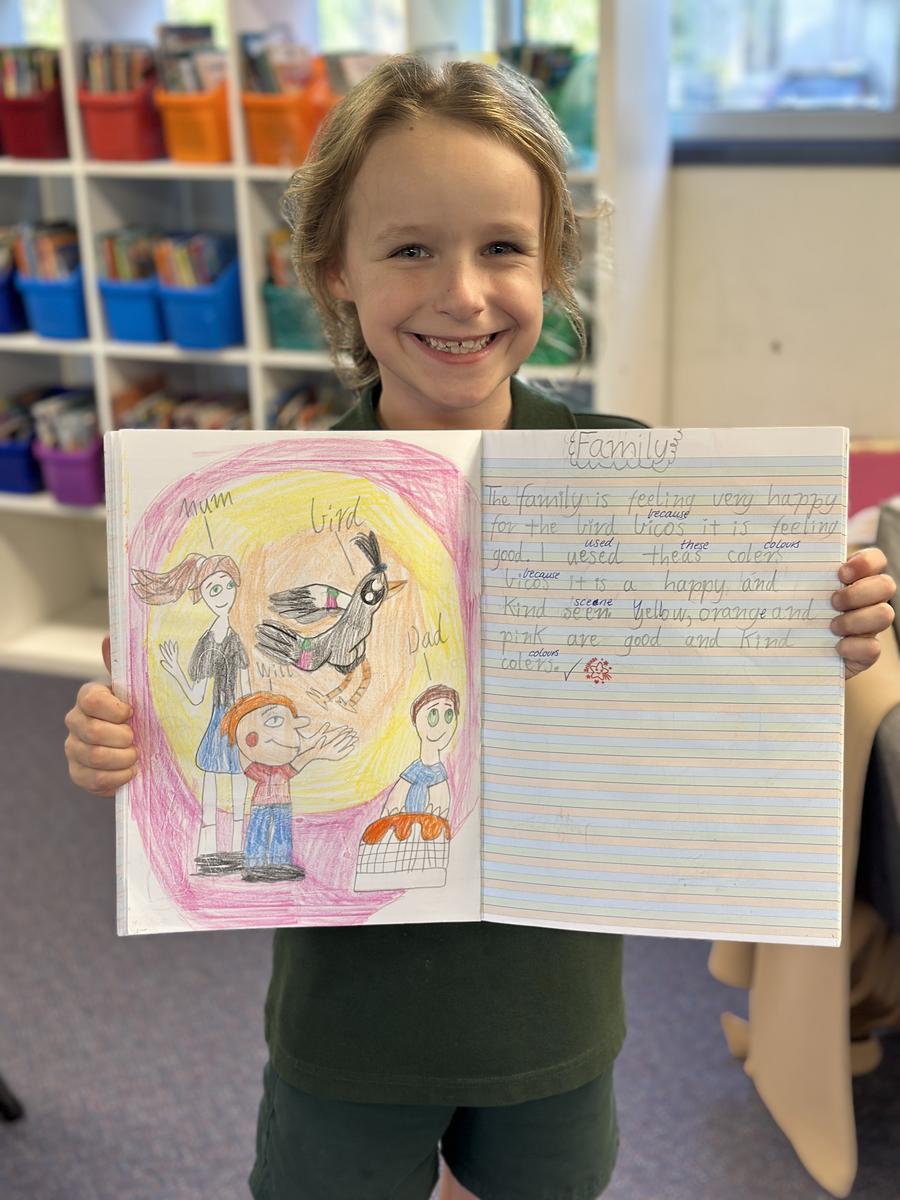 mum
bird
Will
Dad
Family
The family is feeling very happy
because
for the bird vicos it is feeling
used these colours
good. I uesed theas colers
because
vicos it is a happy and
sceene
Kind seen. Yellow, orange and
pink are good and Kind
colours
colers. ✓